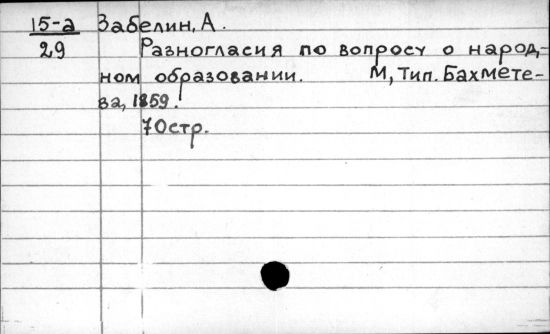 15-а Забелин, А.
29 Разногласия по вопросу о народ-
ном образовании. М, Тип. Бахмете-
ва, 1859.
70стр.